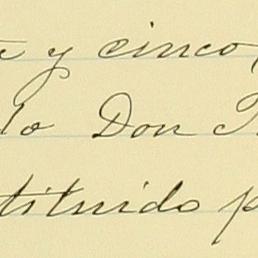 y cinco
do Don
tituido p